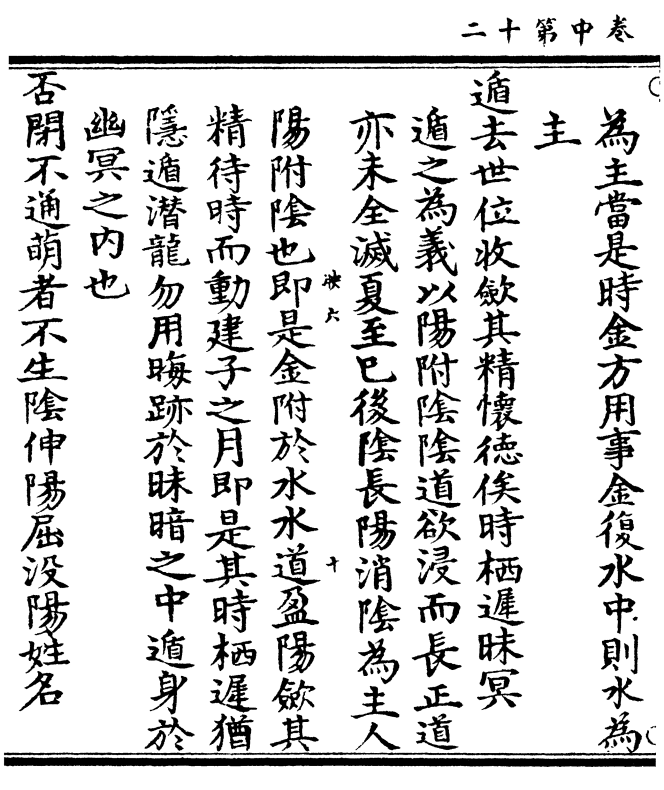 卷中第十二
為主當是時金方用事金復水中則水為
主
遁去世位收歛其精懷德俟時栖遲昧冥
遁之為義以陽附陰陰道欲浸而長正道
亦未全滅夏至已後陰長陽消陰為主人
陽附陰也即是金附於水水道盈陽歛其
映六
十
精待時而動建子之月即是其時栖遲猶
隱遁潛龍勿用晦跡於昧暗之中遁身於
幽冥之內也
否閉不通萌者不生陰伸陽屈沒陽姓名